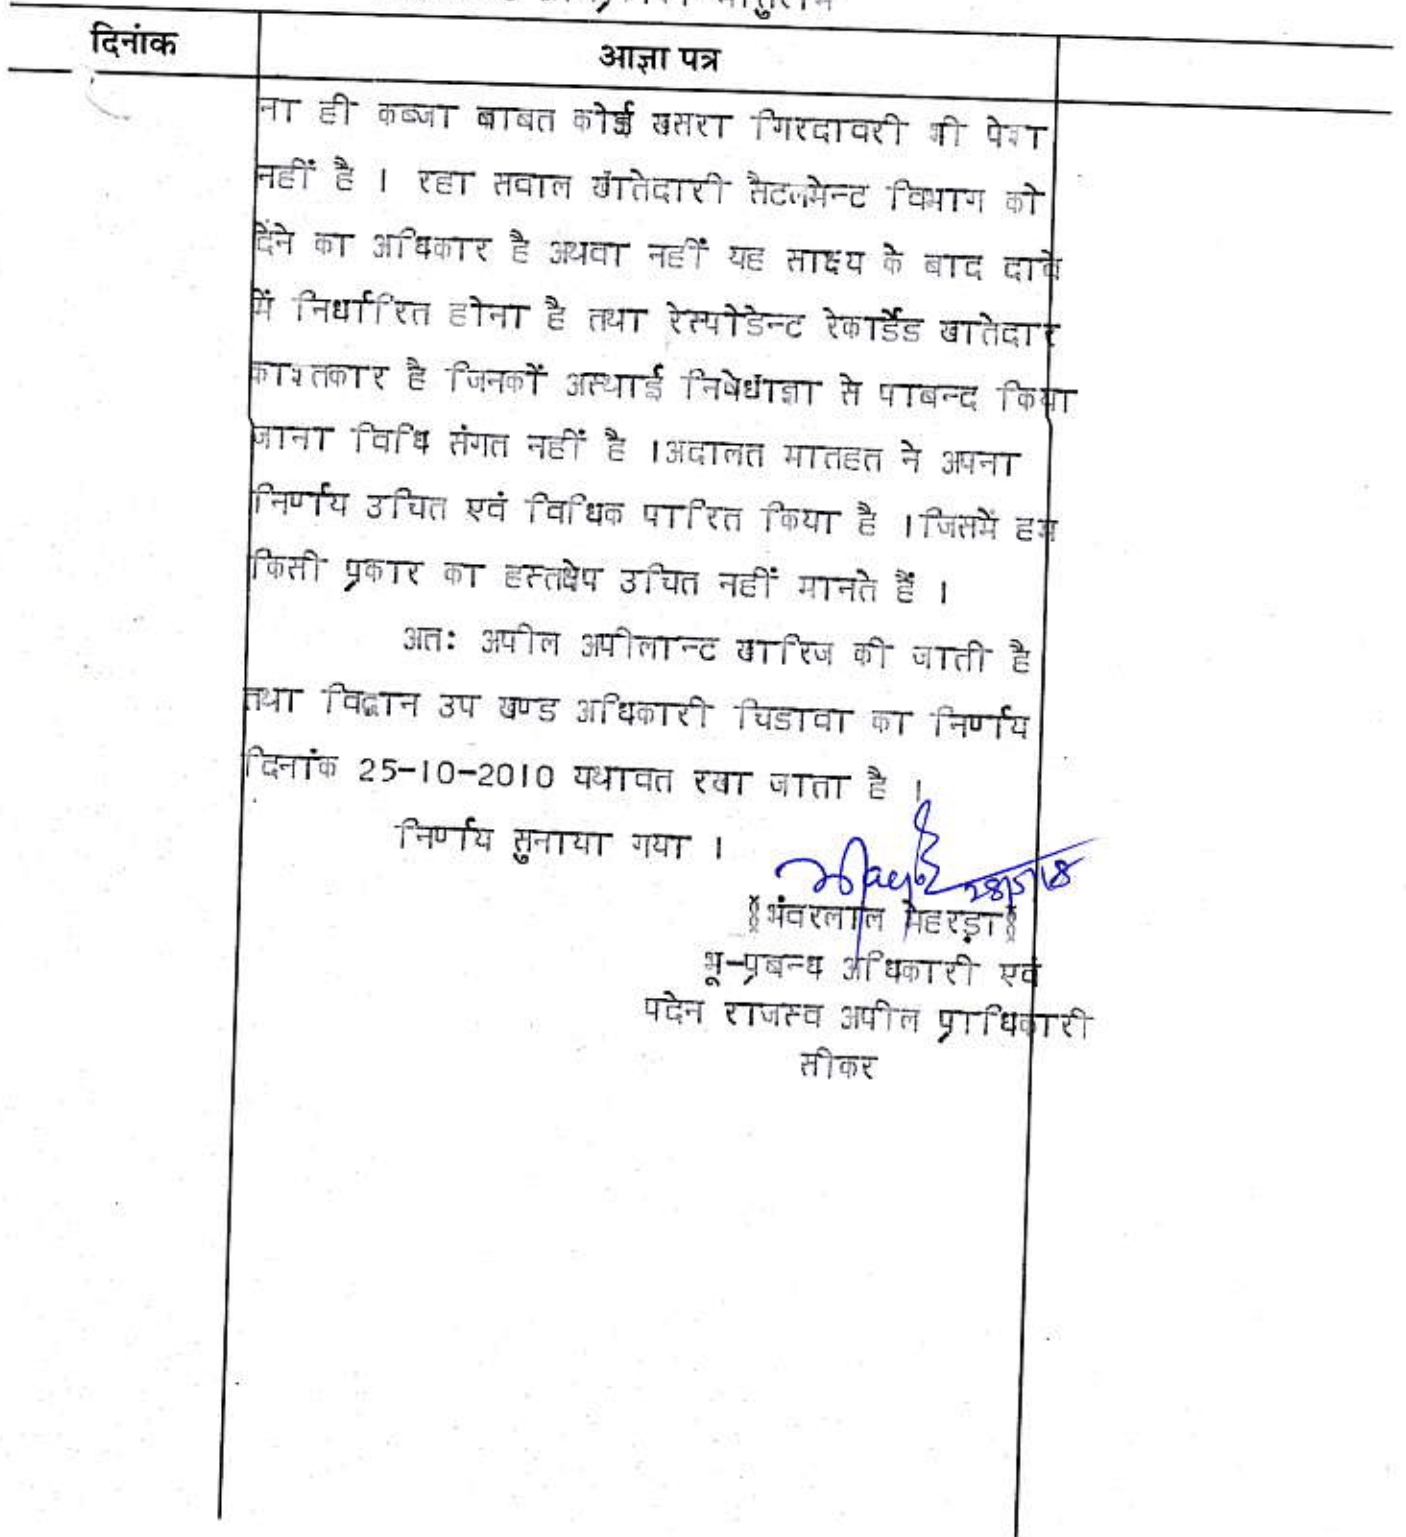 दिनांक
आज्ञा पत्र
ना ही कब्जा बाबत कोई खसरा गिरदावरी भी पेश
नहीं है । रहा सवाल खातेदारी सैटलमेन्ट विभाग को
देने का अधिकार है अथवा नहीं यह साक्ष्य के बाद दावे
में निर्धारित होना है तथा रेस्पोडेन्ट रेकार्डेड खातेदार
काश्तकार है जिनकों अस्थाई निषेधाज्ञा से पाबन्द किया
जाना विधि संगत नहीं है ।अदालत मातहत ने अपना
निर्णय उचित एवं विधिक पारित किया है ।जिसमें हम
किसी प्रकार का हस्तक्षेप उचित नहीं मानते हैं ।
अतः अपील अपीलान्ट खारिज की जाती है
तथा विद्वान उप खण्ड अधिकारी चिडावा का निर्णय
दिनांक 25-10-2010 यथावत रखा जाता है ।
निर्णय सुनाया गया ।
28/5/18
भंवरलाल मेहरड़ा
भू-प्रबन्ध अधिकारी एवं
पदेन राजस्व अपील प्राधिकारी
सीकर